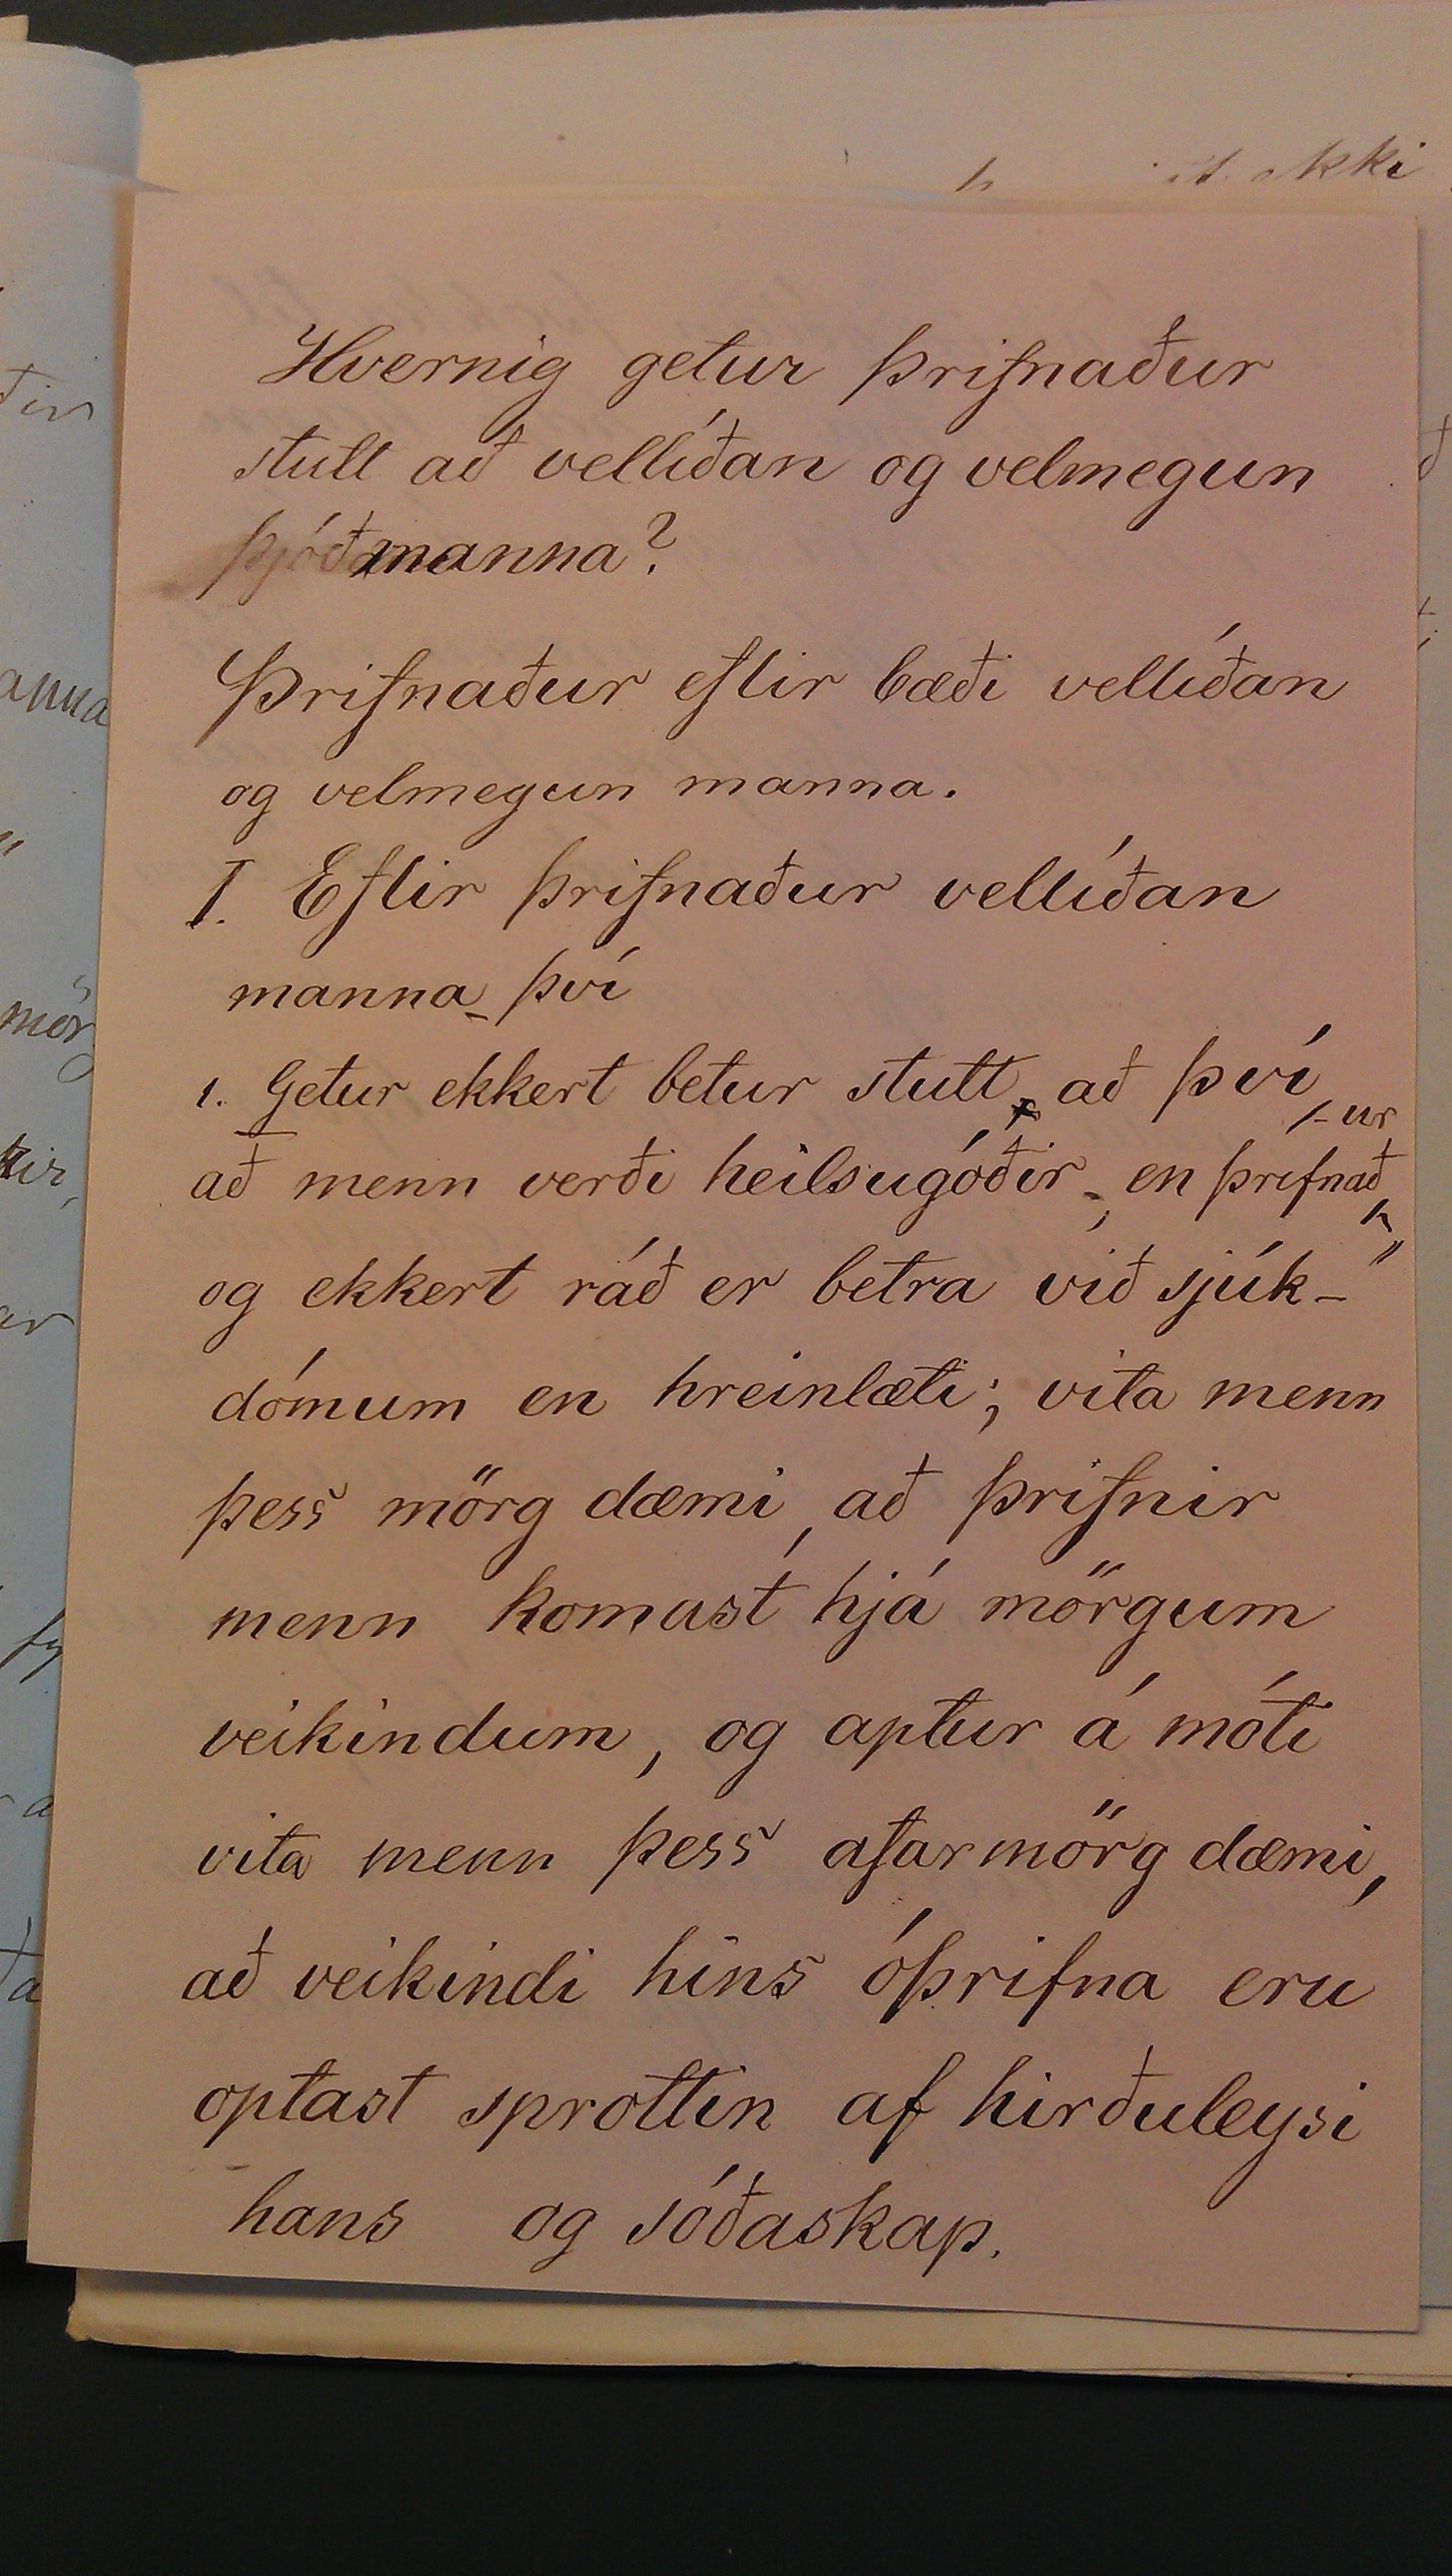 Hvernig getur þrifnaður
stutt að vellíðan og velmegun
þjóðmanna?
Þrifnaður eflir bæði vellíðan
og velmegun manna.
I. Eflir þrifnaður vellíðan
manna því
1. Getur ekkert betur stutt að því
-ur
að menn verði heilsugóðir, en þrifnað
og ekkert ráð er betra við sjúk-
dómum en hreinlæti; vita menn
þess mörg dæmi, að þrifnir
menn komast hjá mörgum
veikindum, og aptur á móti
vita menn þess afarmörg dæmi,
að veikindi hins óþrifna eru
optast sprottin af hirðuleysi
hans og sóðaskap.